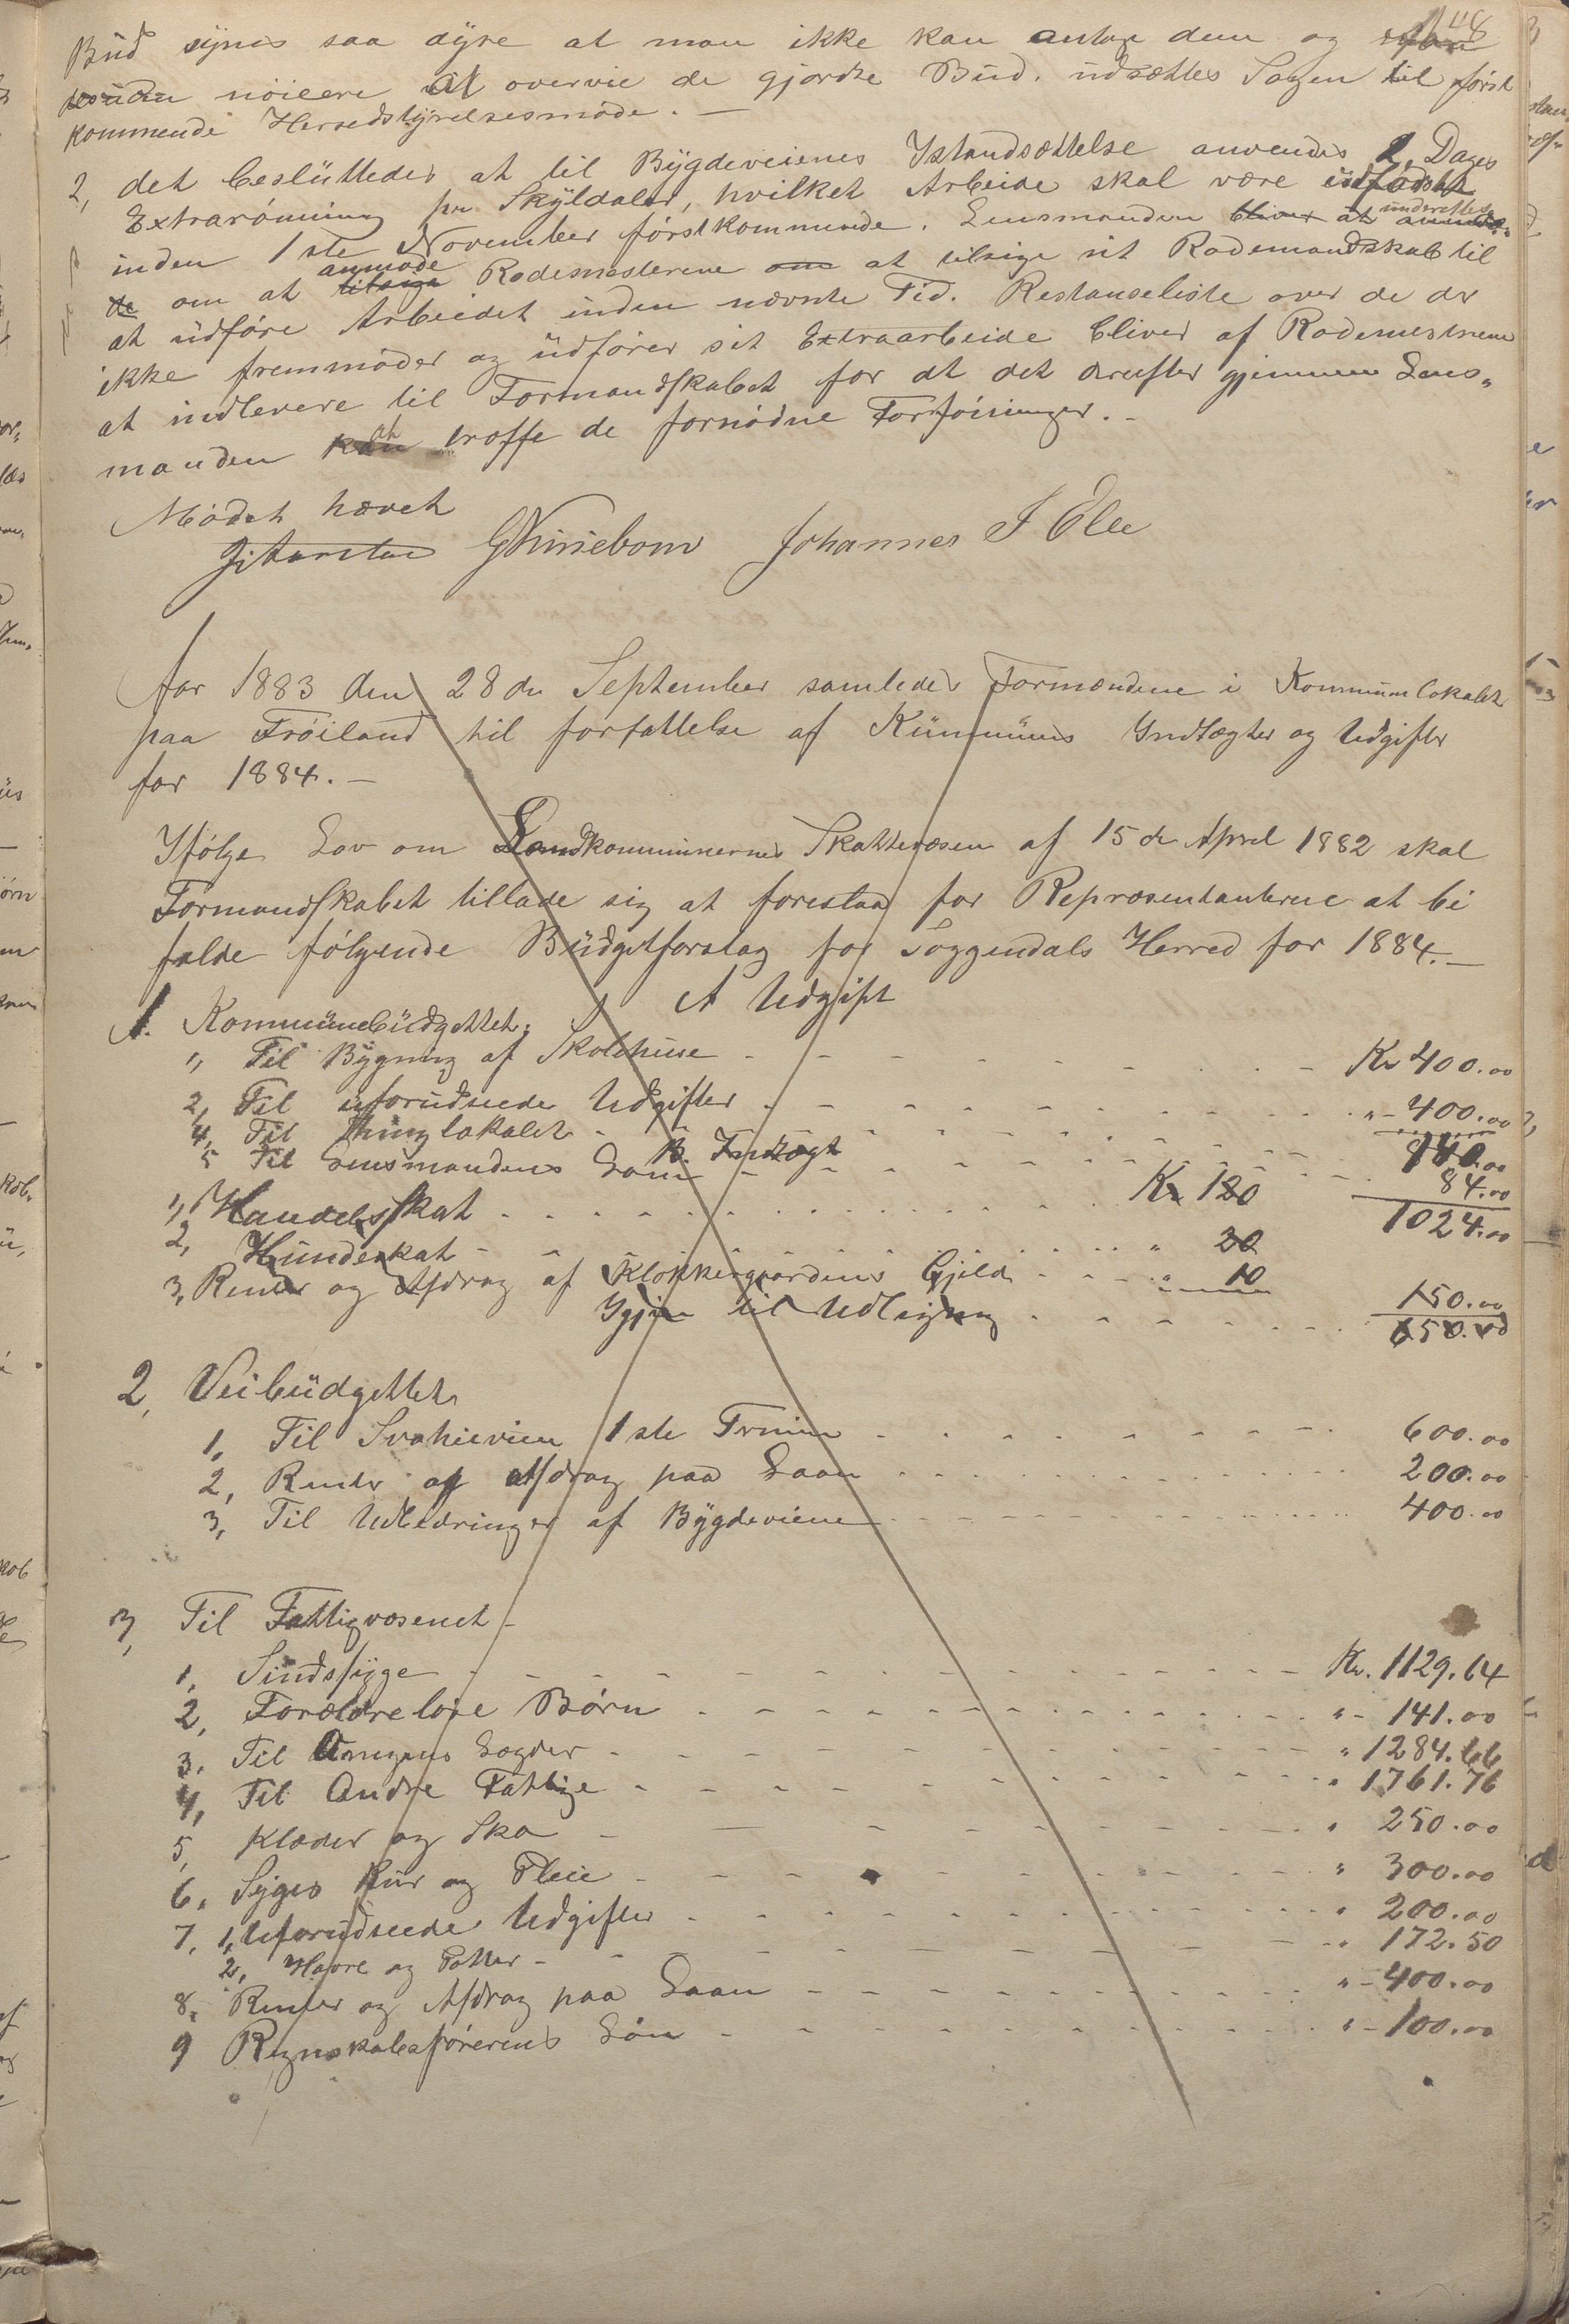 148
Bud synes saa dyre at man ikke kan antage dem og
desuden nøiere at overveie de gjordte Bud. udsættes Sagen til først
kommende Herredstyrelsesmøde. —
2, det besluttedes at til Bygdeveienes Istandsættelse anvendes 2 Dages
Extrarømning pr. Skyldaler, hvilket Arbeide skal være udført
inden 1ste November førstkommende. Lensmanden bliver at underrettes
de om at anmode Rodemesterene om at tilsige sit Rodemandskab til
at udføre Arbeidet inden nævnte Tid. Restanseliste over de der
ikke fremmøder og udfører sit Extraarbeide bliver af Rodemestrene
at indlevere til Formandskabet for at det derefter gjennem Lens-
manden at træffe de fornødne Forføininger. -
Mødet hævet
G Kiniebom Johannes J Elle
Aar 1883 den 28de September samledes Formændene i Kommunelokalet
paa Frøiland til forfattelse af Kummunens Indtægter og Udgifter
for 1884. —
Ifølge Lov om Landkommunernes Skattevæsen af 15de April 1882 skal
Formandskabet tillade sig at foreslaa for Repræsentanterne at bi
falde følgende Budgetforslag for Soggendals Herred for 1884. —
A Udgift
1. Kommunebudgettet.
1, Til Bygning af Skolehuse - - - Kr 400.00
2, Til uforudseede Udgifter - - - " - 400.00
4, Til Thinglokalet - - - 140.00
5 Til Lensmandens Løn - - - 84.00
B. Indtægt
1024.00
1, Handelsskat - - - Kr 120
2, Hundeskat - - - " 20
3, Renter og Afdrag af Klokkergaardens Gjeld - - - " 10
150.00
Igjen til Udligning - - - 650.00
2, Veibudgettet
1, Til Svaheiveien 1ste Termin - - - 600.00
2, Renter og Afdrag paa Laan - - - 200.00
3, Til Udbedringer af Bygdeveiene - - - 400.00
3, Til Fattigvæsenet -
1, Sindssyge - - - Kr. 1129.64
2, Forældreløse Børn - - - " - 141.00
3. Til Omgangs Lægder - - - " 1284.66
4, Til Andre Fattige - - - " 1761.76
5, Klæder og Sko - - - " 250.00
6, Syges Kur og Pleie - - - " 300.00
7, 1, Uforudseede Udgifter - - - " 200.00
2, Havre og Potter - - - " 172.50
8, Renter og Afdrag paa Laan - - - " - 400.00
9 Regnskabsførerens Løn - - - " - 100.00